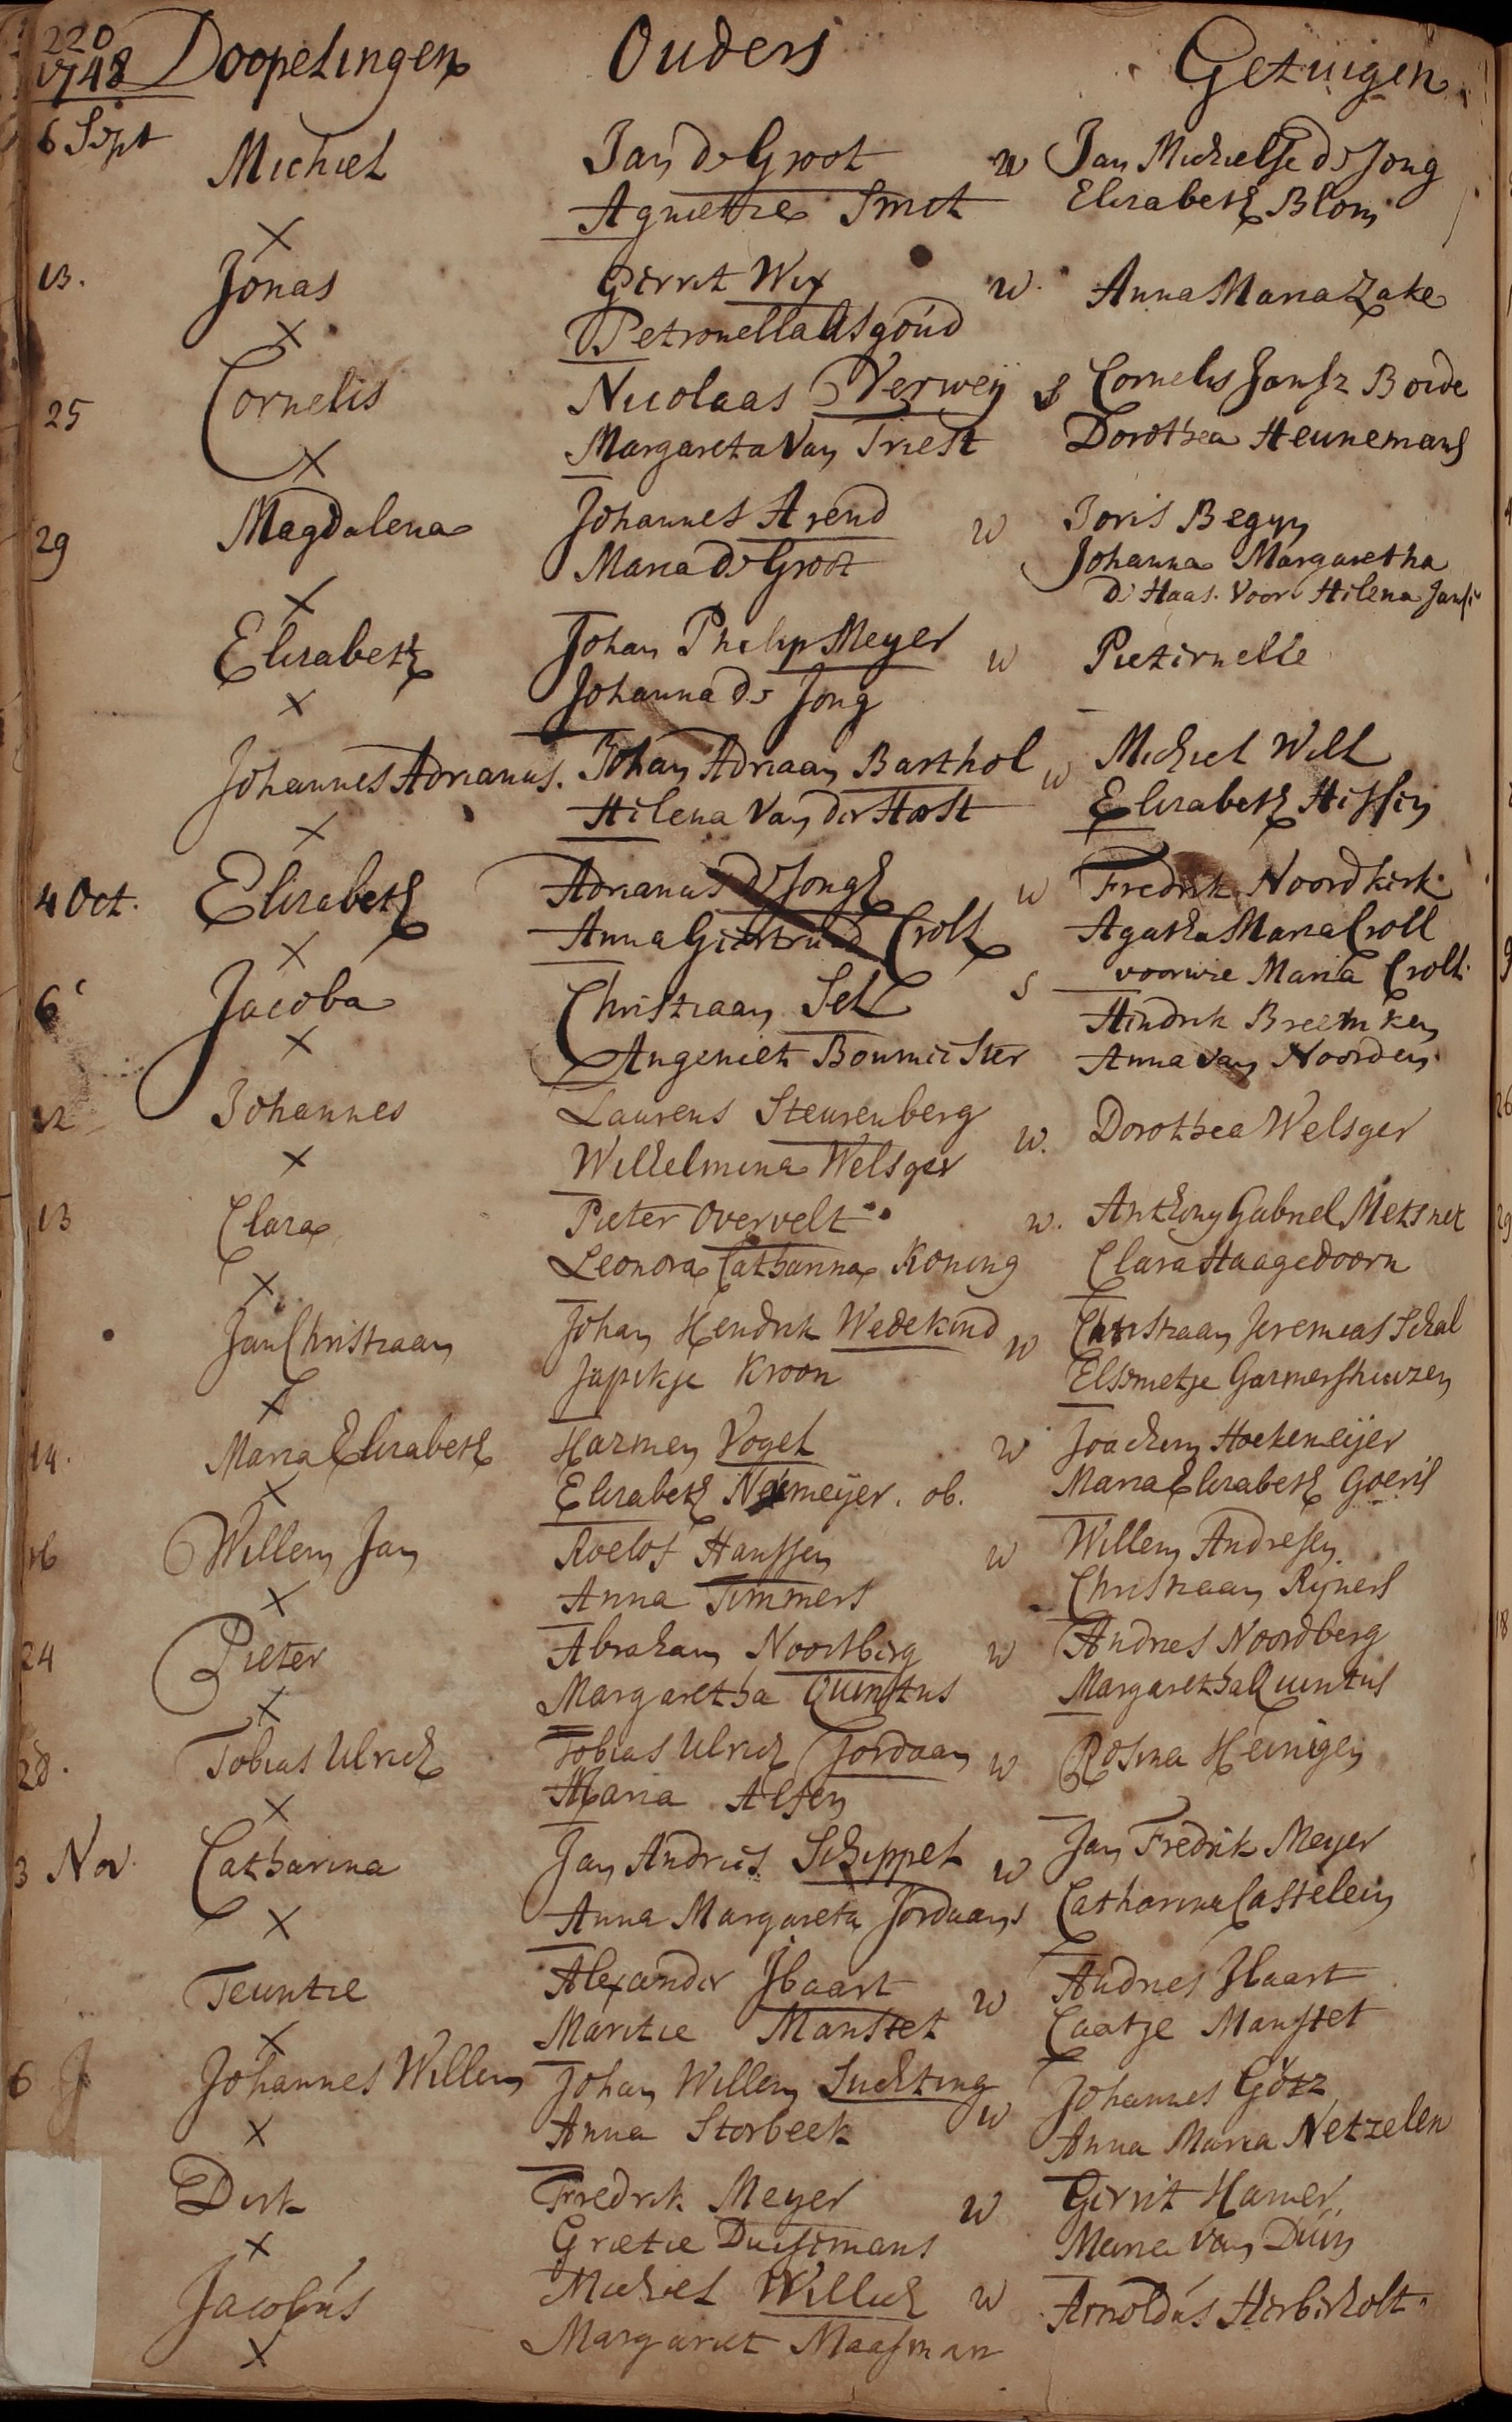 220
1748 Doopelingen Ouders Getuigen
6 Sept Michiel Jan de Groot w Jan Michielse de Jong
Agnietie Smit Elisabeth Blom
X
13. Jonas Gerrit Wix w. Anna Maria Zake
X Petronella Usgoud
25 Cornelis Nicolaas Verweij s Cornelis Jansz Boide
X Margareta Van Triest Dorothea Heunemans
29 Magdalena Johannes Arend w Joris Begyn
Maria de Groot Johanna Margaretha
X de Haas. voor Helena Jansse
Elisabeth Johan Philip Meyer w Pieternelle
X Johanna de Jong
Johannes Adrianus. Johan Adriaan Barthol w Michiel Will
X Helena Van der Horst Elisabeth Hissin
4 Oct. Elisabeth Adrianus de Jongh w Fredrik Noordkerk
X Anna Giertruid Croll Agatha Maria Croll
voor wie Maria Croll.
6 Jacoba Christiaan Sell s Hendrik Breemken
X Angeniet Boumeister Anna van Noorden.
12 Johannes Laurens Steurenberg w. Dorothea Welsger
X Wilhelmina Welsger
13 Clara Pieter Overvelt w. Anthony Gabriel Metsner
X Leonora Catharina Koning Clara Haagedoorn
Jan Christiaan Johan Hendrik Wedekind w Christiaan Jeremias Schal
X Japikje Kroon Elsemetje Garmershuizen
14. Maria Elisabeth Harmen Vogel w Joachim Hoekemeijer
X Elisabeth Niemeijer. ob. Maria Elisabeth Goeris
16 Willem Jan Roelof Hanssen w Willem Andresen
X Anna Timmers Christiaan Rijners
24 Pieter Abraham Noortberg w Andries Noordberg
X Margaretha Quintus Margaretha Quintus
28. Tobias Ulrich Tobias Ulrich Jordaan w Rosina Heinigen
X Maria Alsen
3 Nov. Catharina Jan Andries Schippel w Jan Fredrik Meyer
X Anna Margareta Jordaans Catharina Castelein
Teuntie Alexander Jbaart w Andries Jbaart
X Maritie Manstet Caatje Manstet
6 Johannes Willem Johan Willem Suchting w Johannes Götz
X Anna Storbeek Anna Maria Netzelen
Dirk Fredrik Meyer w Gerrit Hamer
X Grietie Duisimans Maria van Duin
Jacobus Michiel Willich w Arnoldus Herberholt.
X Margariet Maasman